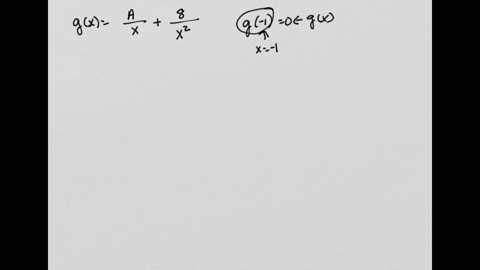 g(x)= A/x + 8/x² g(-1)=0← g(x)
↑
x=-1